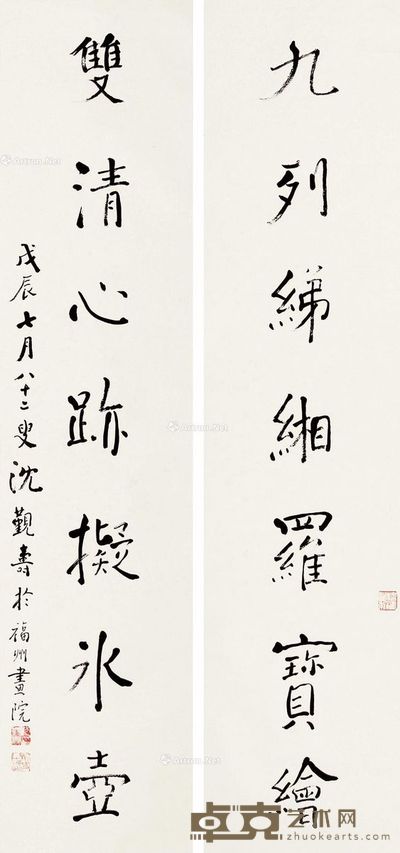 九列綈緗羅寶繪
雙清心跡擬冰壺
戊辰七月八十二叟沈覲壽於福州畫院
卓克艺术网
zhuokearts.com
Artron.Net
Artron.Net
Artron.Net
Artron.Net